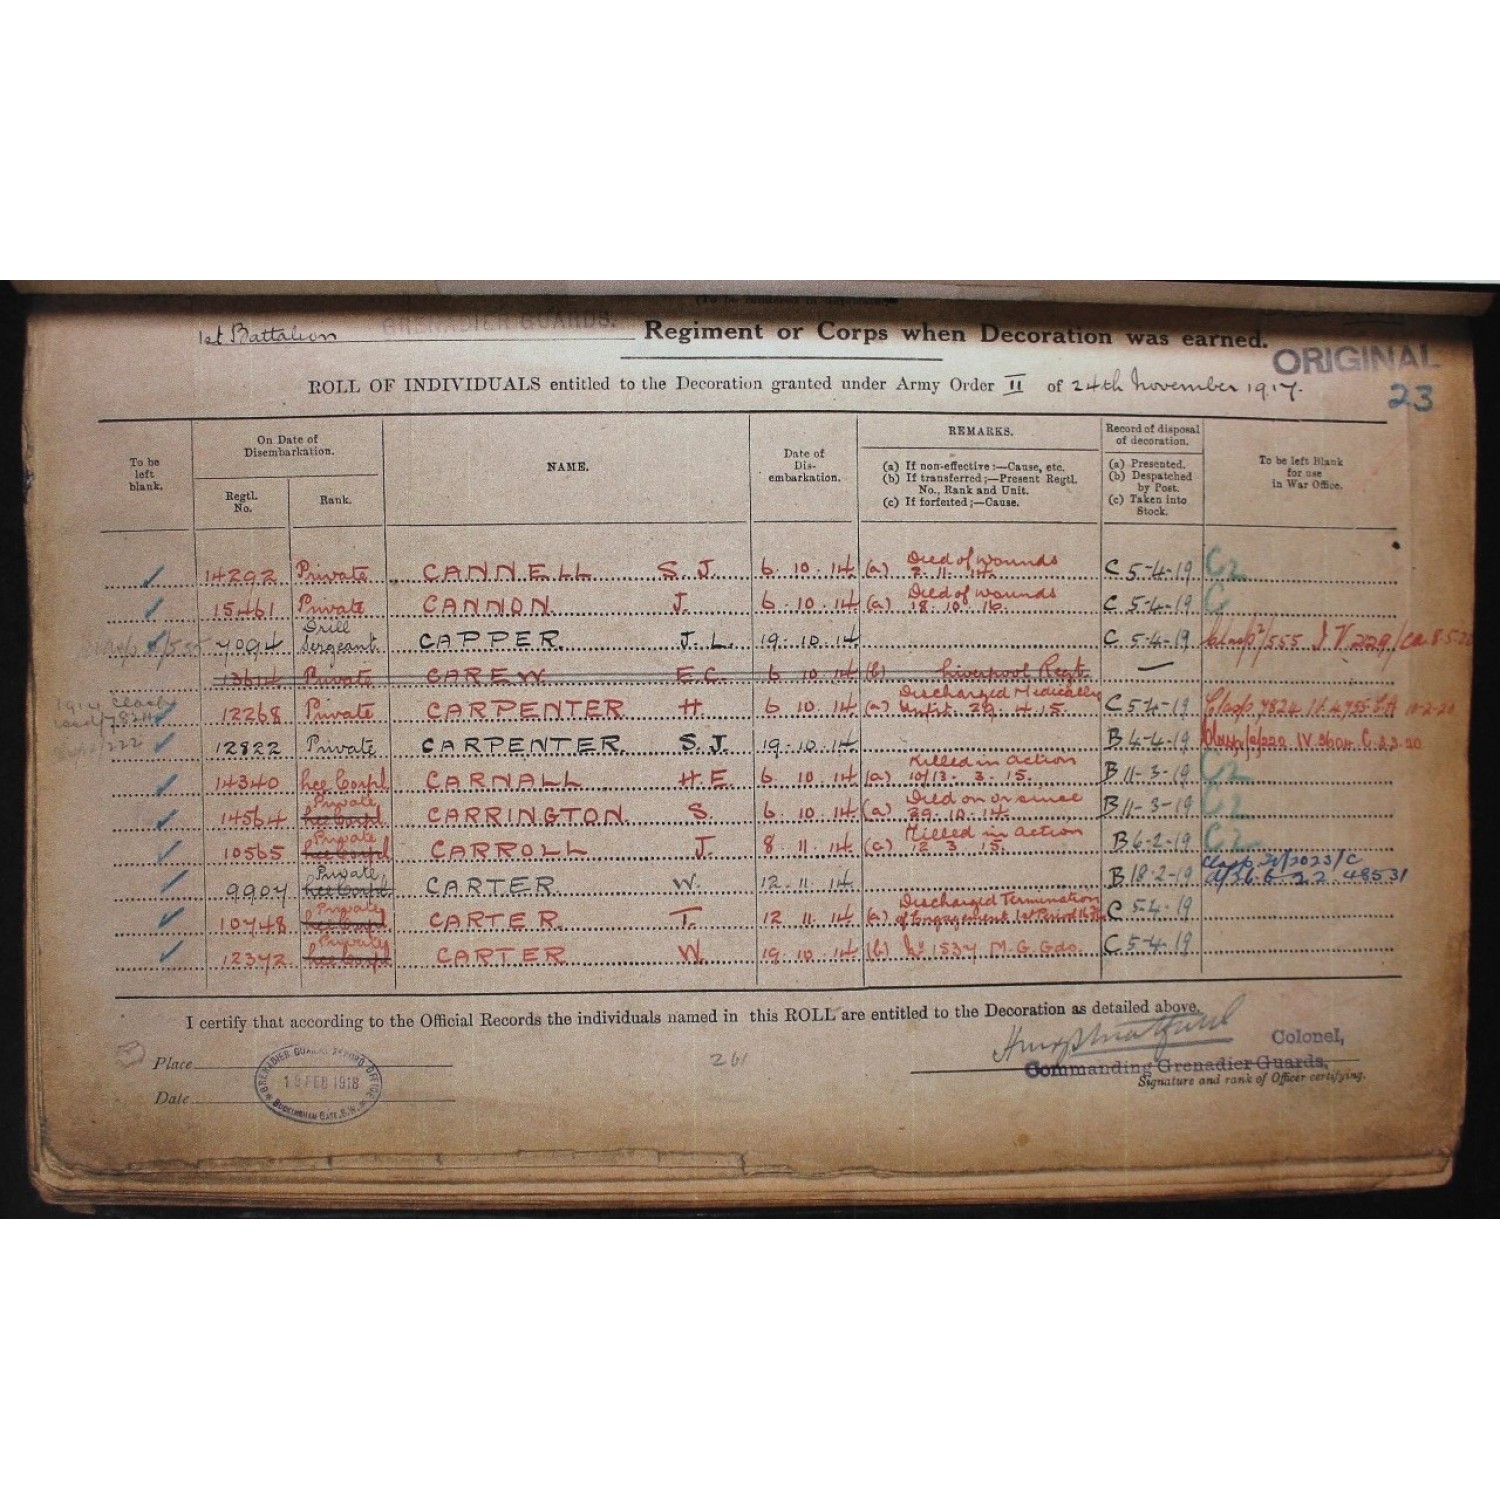 1st Battalion GRENADIER GUARDS. Regiment or Corps when Decoration was earned.
ORIGINAL
23
ROLL OF INDIVIDUALS entitled to the Decoration granted under Army Order II of 24th November 1917.
To be left blank.
On Date of Disembarkation.
Regtl. No.
Rank.
NAME.
Date of Dis-embarkation.
REMARKS.
(a) If non-effective:—Cause, etc.
(b) If transferred;—Present Regtl. No., Rank and Unit.
(c) If forfeited;—Cause.
Record of disposal of decoration.
(a) Presented.
(b) Despatched by Post.
(c) Taken into Stock.
To be left Blank for use in War Office.
14292 Private CANNELL S. J. 6. 10. 14 (a) Died of wounds 2. 11. 14. C 5-4-19 C2
15461 Private CANNON J. 6. 10. 14 (a) Died of wounds 18. 10. 16. C 5-4-19 C
7094 Drill Sergeant. CAPPER. J. L. 19. 10. 14 C 5-4-19 Clasp 2/555 IV 229/CA 8-5-20
13614 Private CAREW E C. 6 10 14 (b) Liverpool Regt —
1914 Clasp
12268 Private CARPENTER H. 6 10 14 (a) Discharged Medically Unfit. 29. 4. 15. C 5-4-19 Clasp 7824 IV 4755 CA 10-2-20
12822 Private CARPENTER. S. J. 19. 10. 14. B 4-4-19 IV 3604 C. 3.3.20
14340 Lce Corpl CARNALL H. E. 6. 10. 14 (a) Killed in action 10/13. 3. 15. B 11-3-19 C2
14564 Private Lce Corpl CARRINGTON. S. 6. 10. 14 (a) Died on or since 29. 10. 14. B 11-3-19 C2
10565 Private Lce Corpl CARROLL J. 8. 11. 14 (a) Killed in action 12 3 15. B 6-2-19 C2
9907 Private Lce Corpl CARTER W. 12. 11. 14 B 18-2-19 Clasp 2/2023/C 26.6.22. 48531
10748 Private Lce Corpl CARTER. T. 12 11. 14 (a) Discharged Termination of Engagement 1st Period C 5-4-19
12372 Private Lce Corpl CARTER W. 19 10. 14 (b) No 1537 M. G. Gds. C 5-4-19
I certify that according to the Official Records the individuals named in this ROLL are entitled to the Decoration as detailed above.
Place
Date
GRENADIER GUARDS RECORD OFFICE
19 FEB 1918
BUCKINGHAM GATE, S.W.
261
Colonel,
Commanding Grenadier Guards.
Signature and rank of Officer certifying.